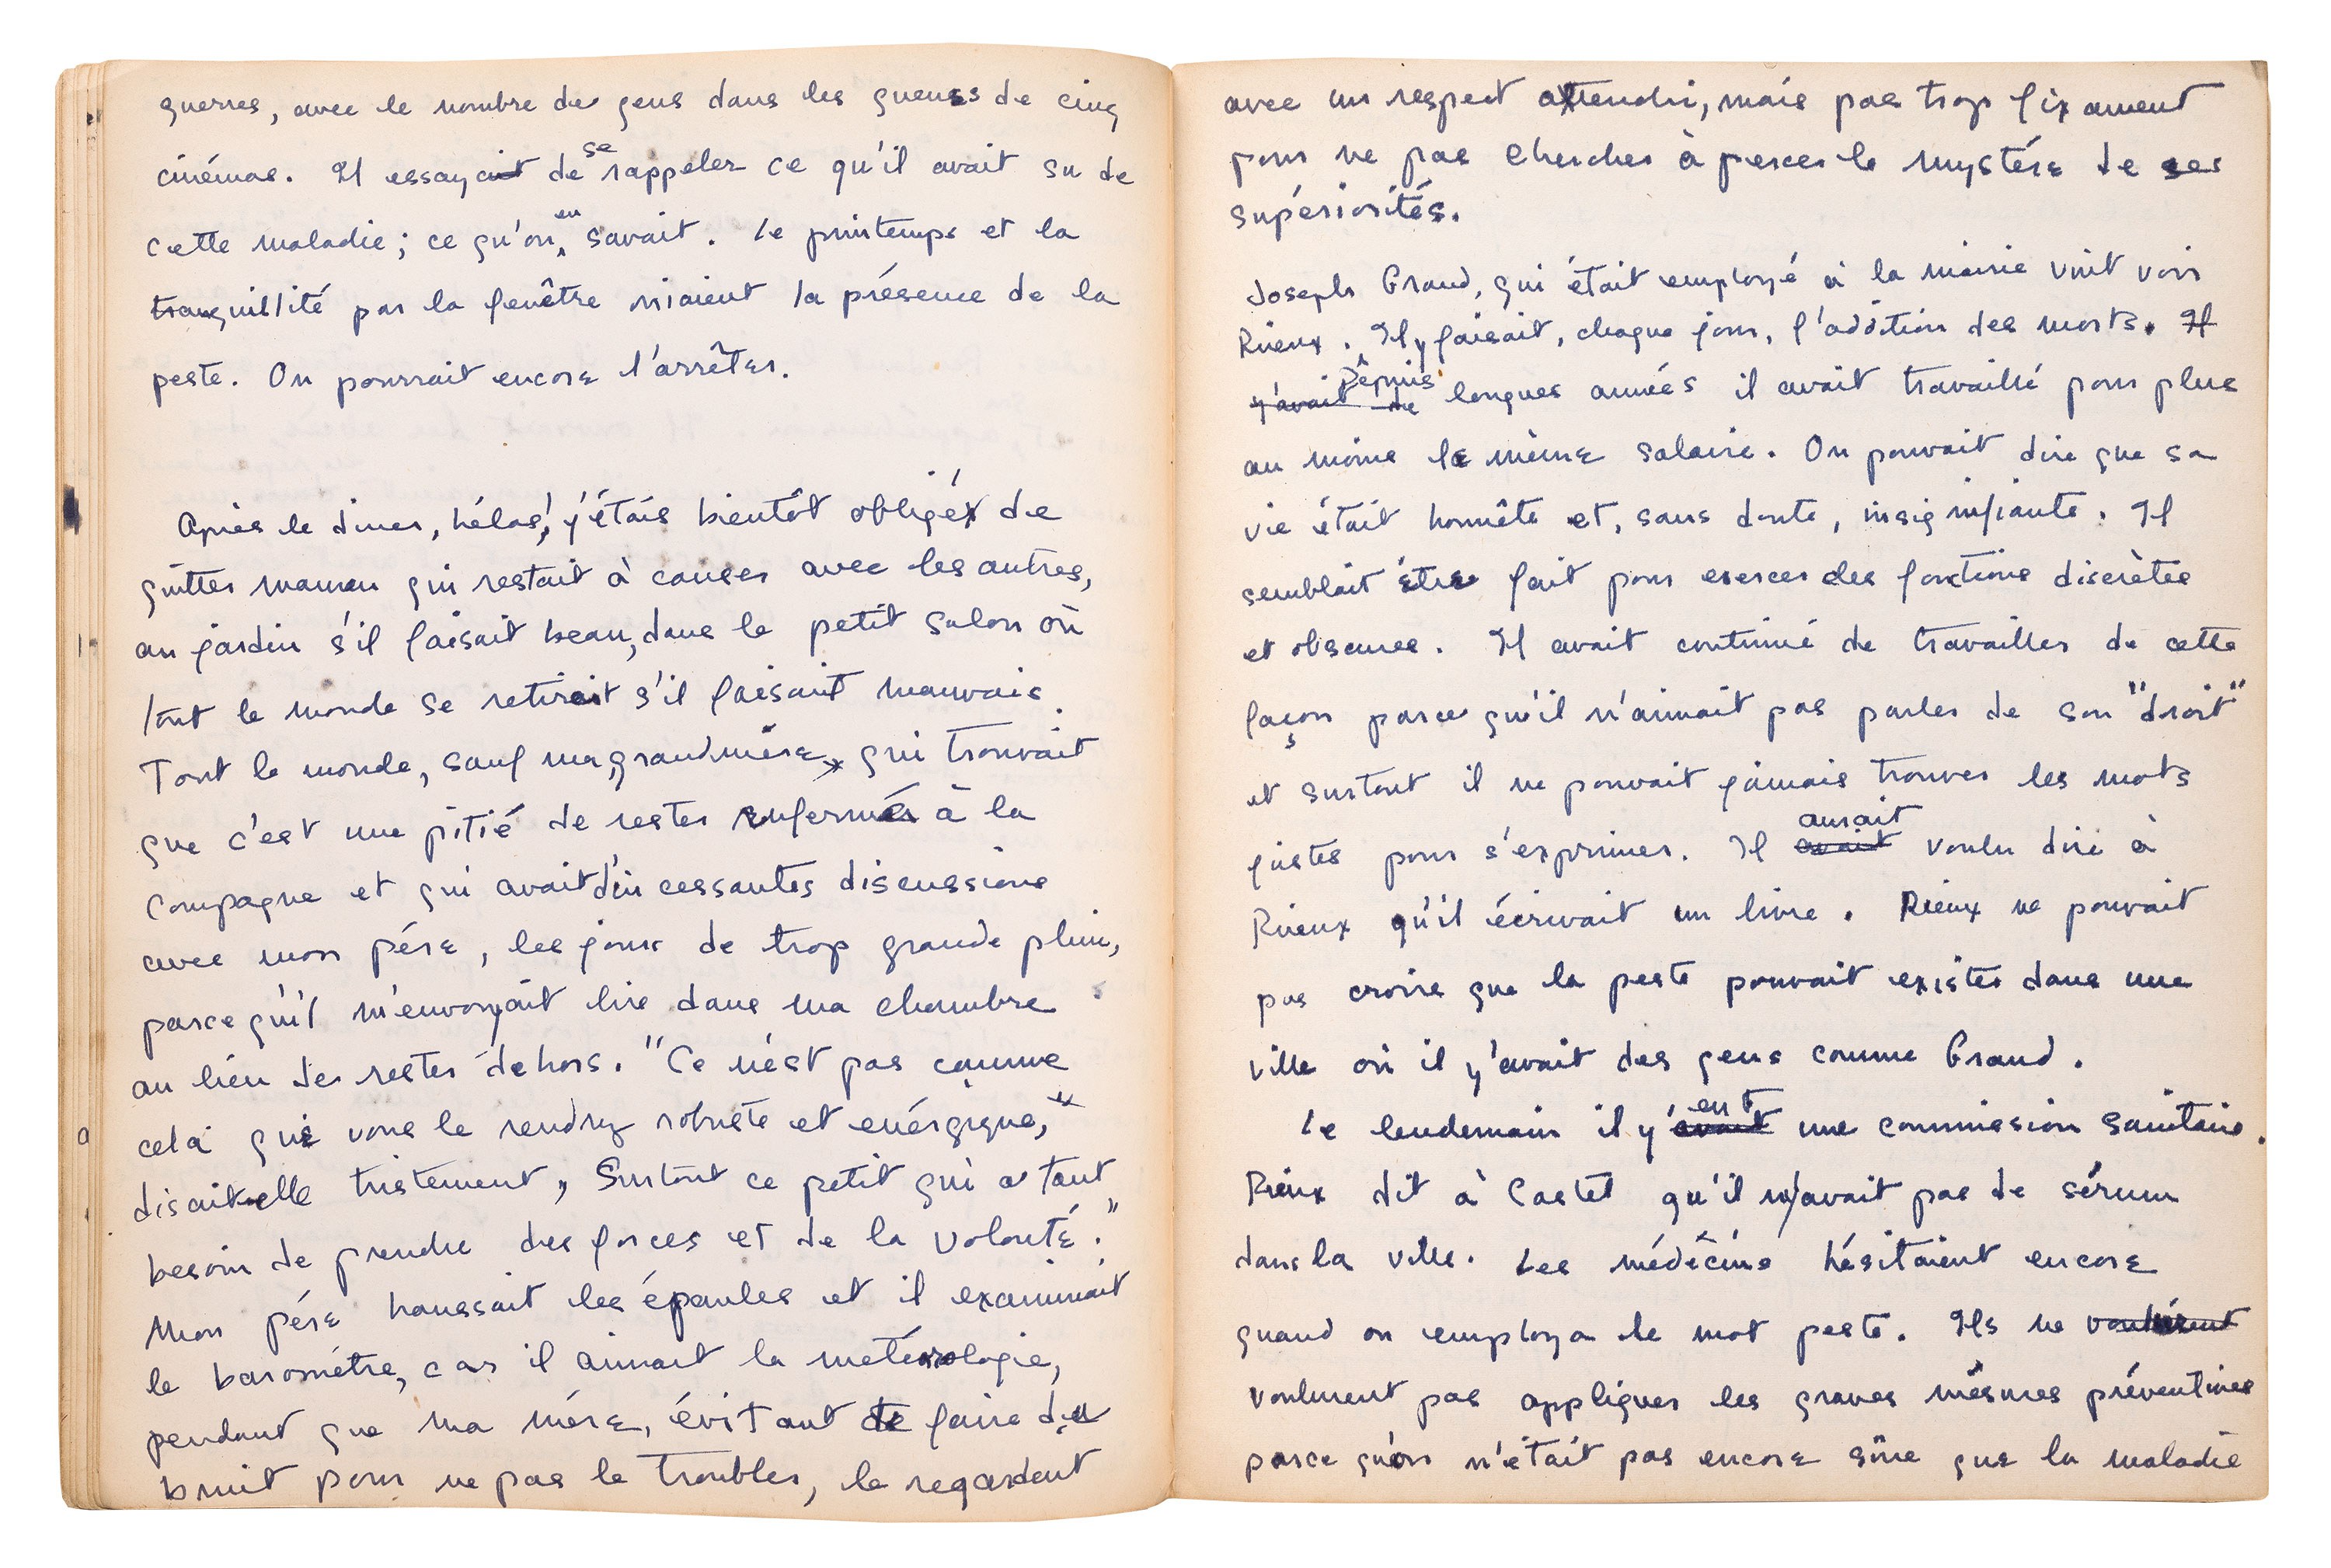 guerres, avec le nombre de gens dans les queues de cinq
cinémas. Il essayait de se rappeler ce qu'il avait su de
cette maladie; ce qu'on en savait. Le printemps et la
tranquillité par la fenêtre niaient la présence de la
peste. On pourrait encore l'arrêter.
Après le diner, hélas! j'étais bientôt obligé de
quitter maman qui restait à causer avec les autres,
au jardin s'il faisait beau, dans le petit salon où
tout le monde se retirait s'il faisait mauvais.
Tout le monde, sauf ma grandmère, qui trouvait
que c'est une pitié de rester enfermé à la
compagne et qui avait d'incessantes discussions
avec mon pére, les jours de trop grande pluie,
parce qu'il m'envoyait lire dans ma chambre
au lieu de rester dehors. "Ce n'est pas comme
cela que vous le rendrez robuste et enérgique,"
disait-elle tristement, "Surtout ce petit qui a tant
besoin de prendre des forces et de la volonté."
Mon pére haussait les épaules et il examinait
le barométre, car il aimait la météorologie,
pendant que ma mére, évitant de faire du
bruit pour ne pas le troubler, le regardent
avec un respect attendri, mais pas trop fixament
pour ne pas chercher à percer le mystére de ses
supériorités.
Joseph Grand, qui était employé à la mairie vint voir
Rieux. Il y faisait, chaque jour, l'addition des morts. Il
y'avait de Depuis longues années il avait travaillé pour plus
au moins le même salaire. On pouvait dire que sa
vie était honnête et, sans doute, insignifiante. Il
semblait être fait pour exercer des fonctions discrètes
et obscures. Il avait continué de travailler de cette
façon parce qu'il n'aimait pas parler de son "droit"
et surtout il ne pouvait jamais trouver les mots
justes pour s'exprimer. Il avait aurait voulu dire à
Rieux qu'il écrivait un livre. Rieux ne pouvait
pas croire que la peste pouvait exister dans une
ville où il y'avait des gens comme Grand.
Le lendemain il y'avait eut une commission sanitaire.
Rieux dit à Castel qu'il n'avait pas de sérum
dans la ville. Les médécins hésitaient encore
quand on employa le mot peste. Ils ne voulaient
voulurent pas appliquer les graves mésures préventives
parce qu'on n'était pas encore sûre que la maladie